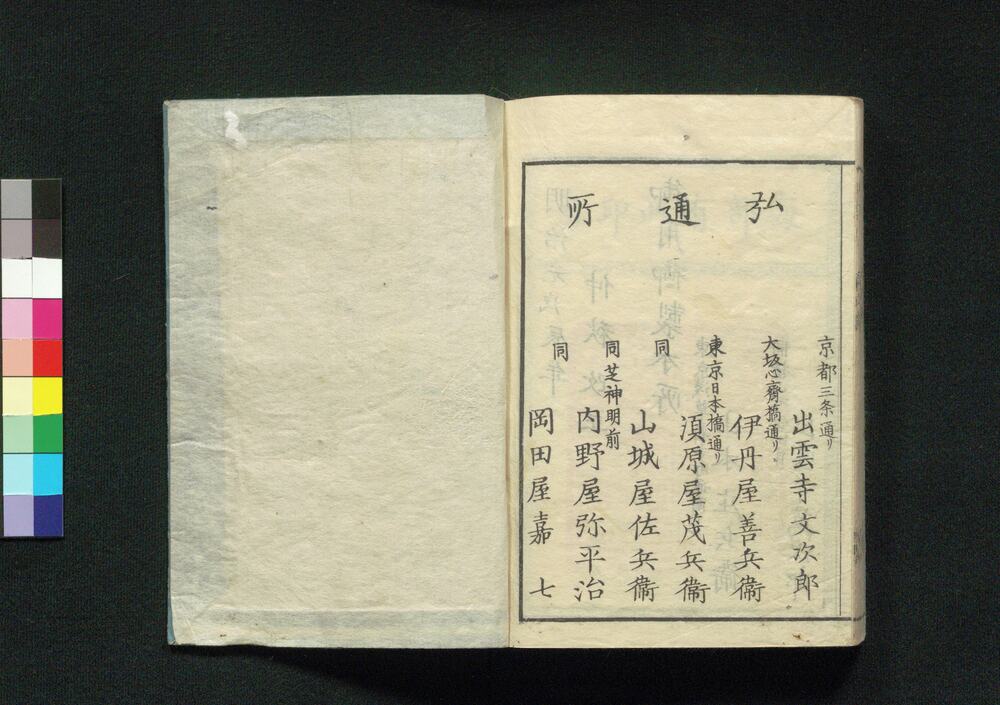 弘通所
京都三条通り
出雲寺文次郎
大坂心齋橋通り
伊丹屋善兵衞
東京日本橋通り
須原屋茂兵衞
同
山城屋佐兵衞
同芝神明前
内野屋弥平治
同
岡田屋嘉七